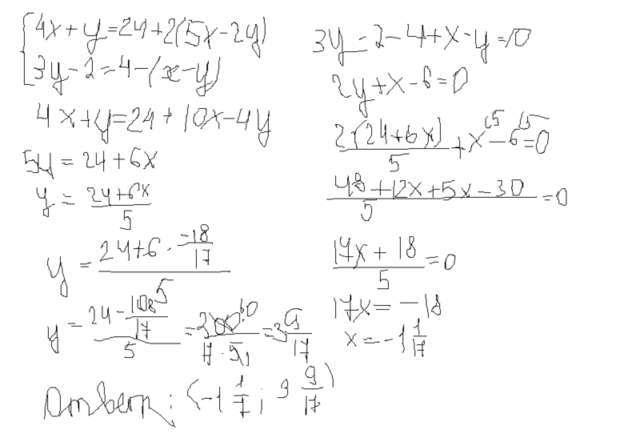 {4x+y=24+2(5x-2y)
3y-2=4-(x-y)
4x+y=24+10x-4y
5y=24+6x
y=\frac{24+6x}{5}
y=\frac{24+6·\frac{-18}{17}}{5}
y=\frac{24-\frac{108}{17}}{5}=\frac{300^{60}}{17·5_1}=3\frac{9}{17}
3y-2-4+x-y=0
2y+x-6=0
\frac{2(24+6x)}{5}+x^{(5}-6^{(5}=0
\frac{48+12x+5x-30}{5}=0
\frac{17x+18}{5}=0
17x=-18
x=-1\frac{1}{17}
Ответ: (-1\frac{1}{7}; 3\frac{9}{17})